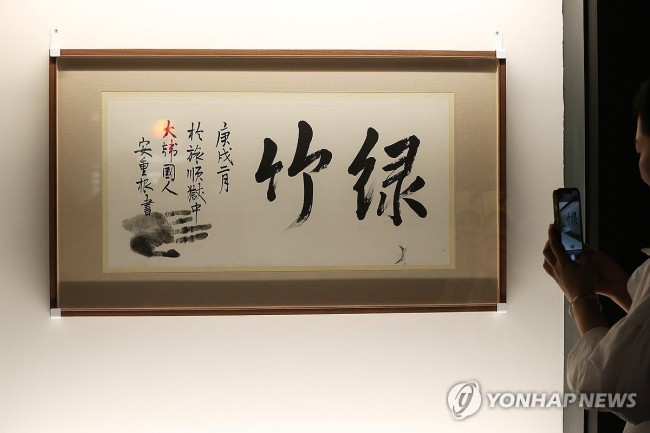 綠竹
庚戌二月
於旅順獄中
大韓國人
安重根書
YONHAPNEWS